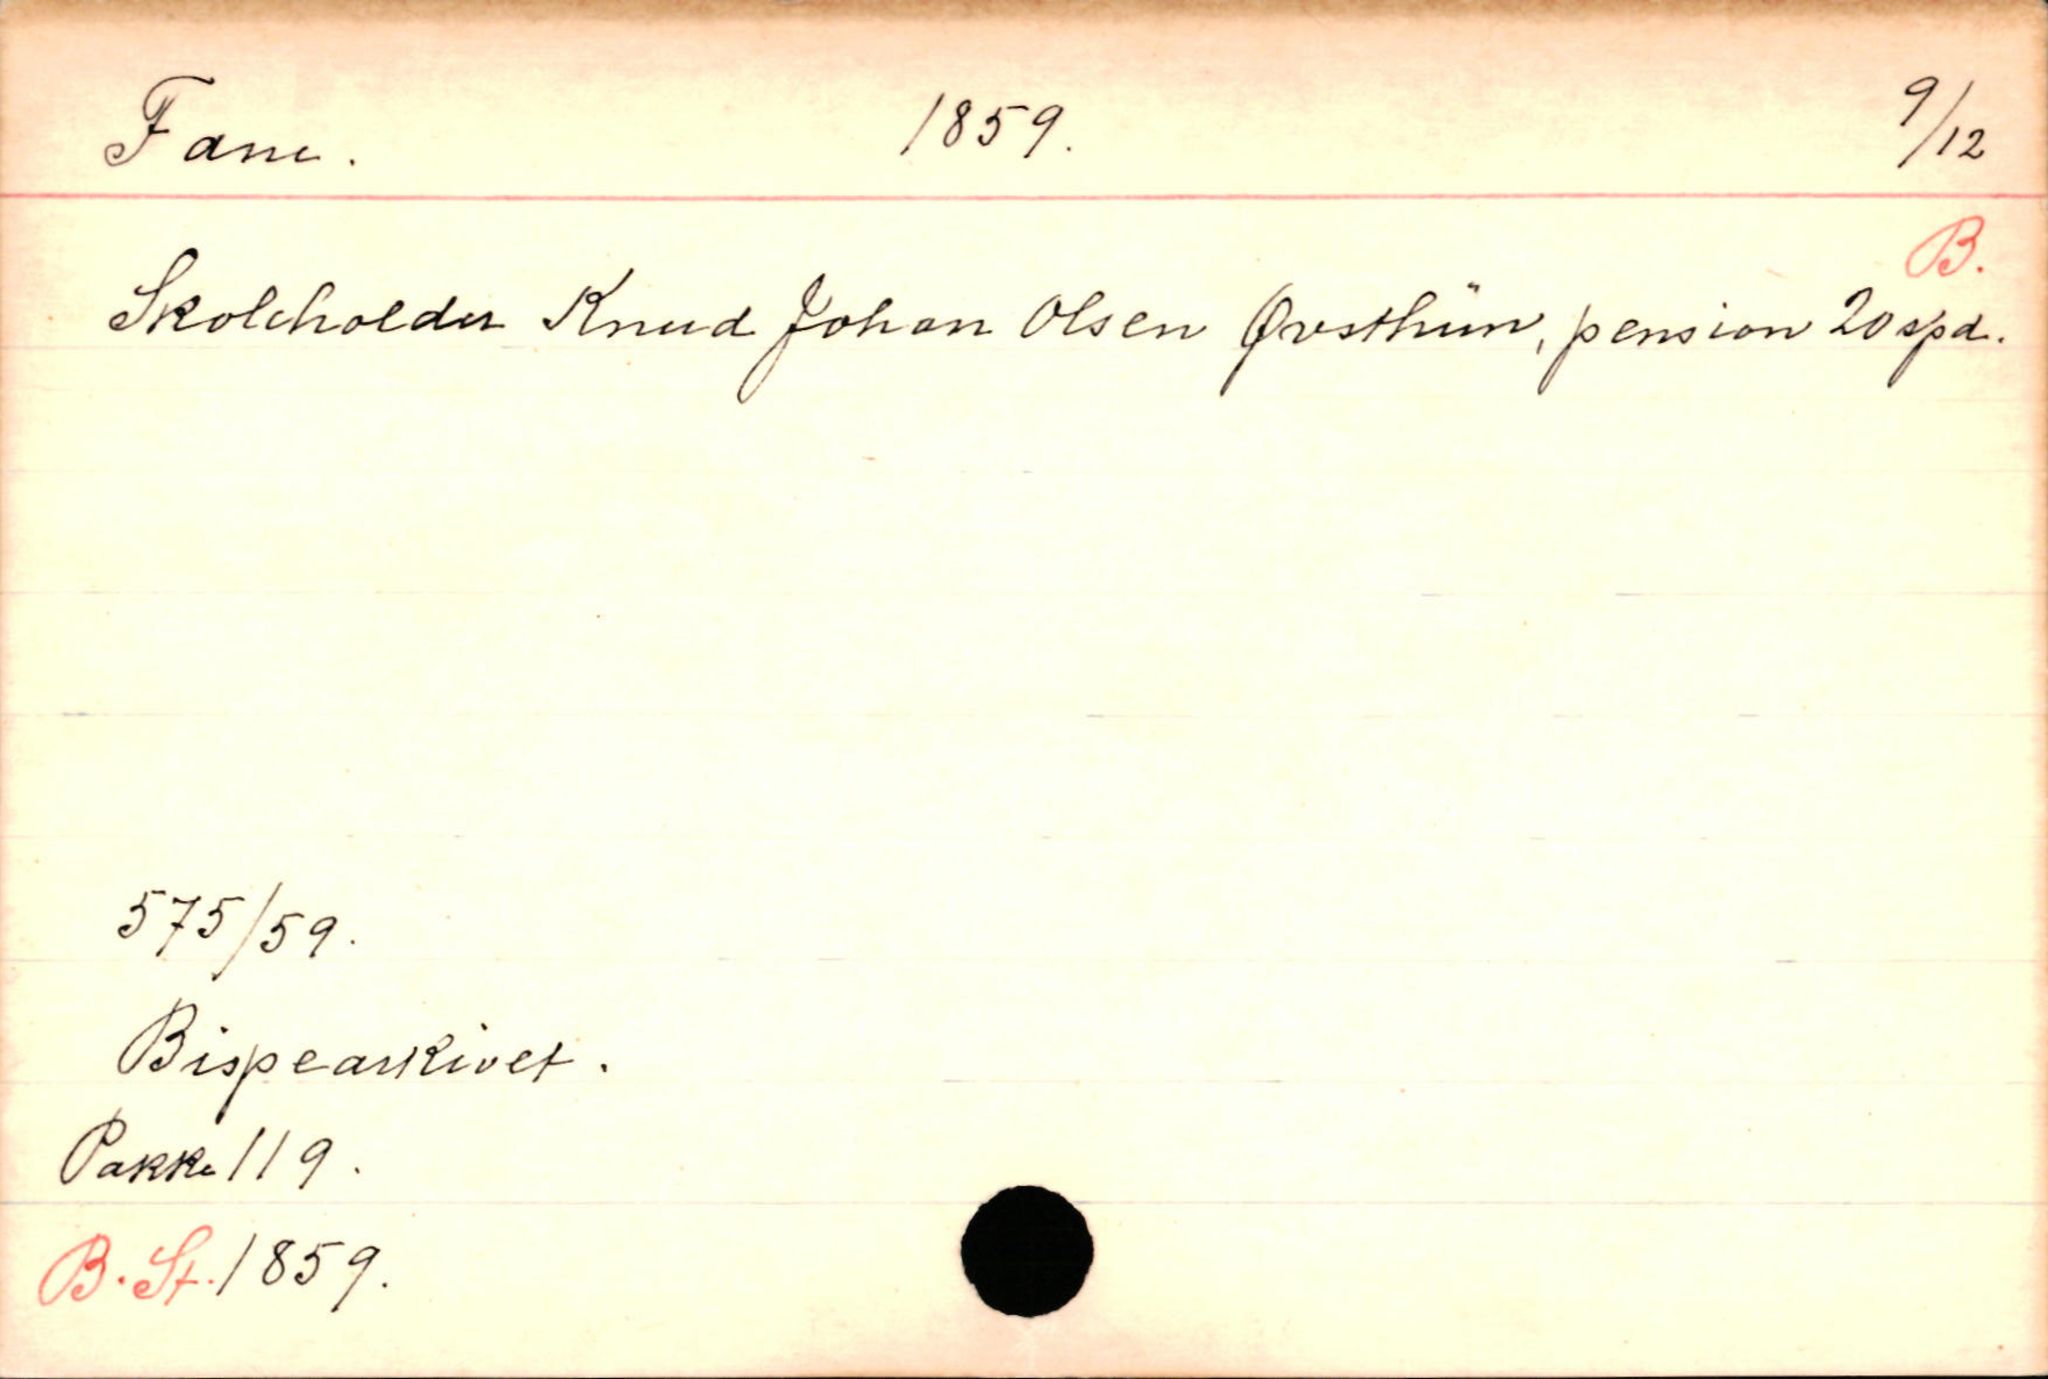 Fane. 1859. 9/12
B.
Skoleholder Knud Johan Olsen Øvsthün, pension 20 spd.
575/59.
Bispearkivet.
Pakke 119.
B. St. 1859.